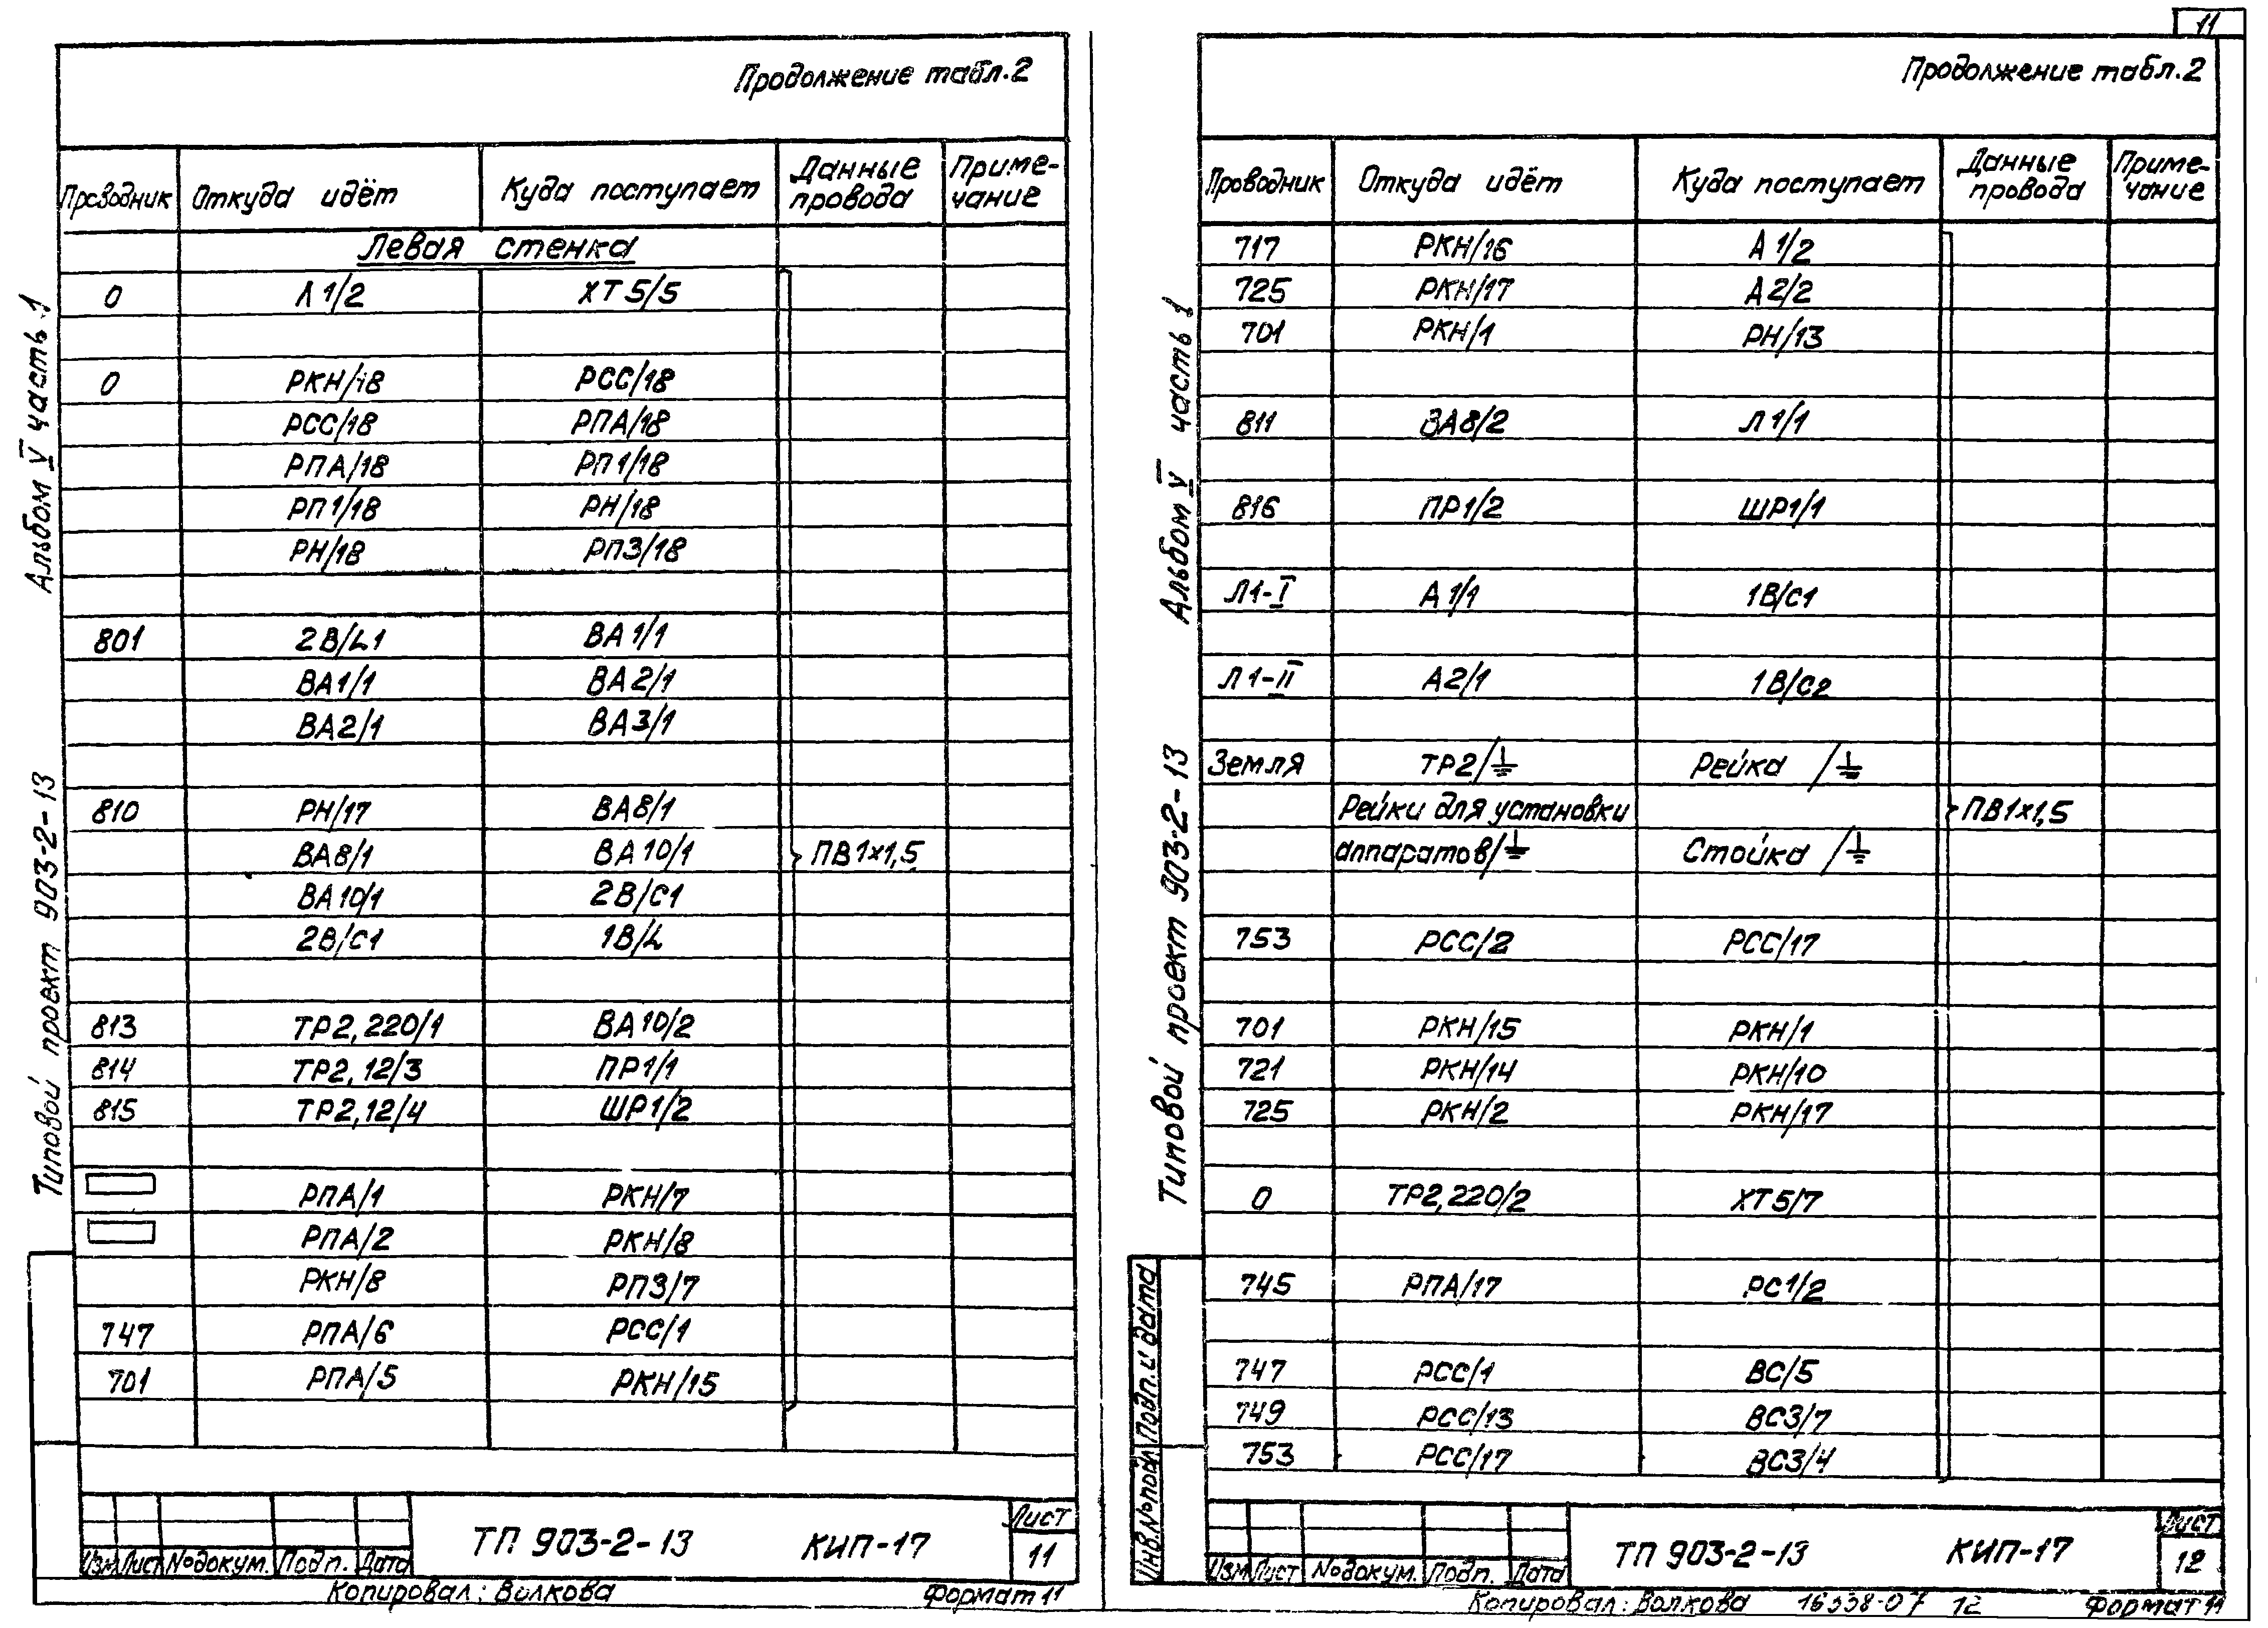 11
Продолжение табл.2
Проводник Откуда идёт Куда поступает Данные провода Приме-чание
Левая стенка
0 Л1/2 ХТ5/5
0 РКН/18 РСС/18
РСС/18 РПА/18
РПА/18 РП1/18
РП1/18 РН/18
РН/18 РП3/18
801 2В/L1 ВА1/1
ВА1/1 ВА2/1
ВА2/1 ВА3/1
810 РН/17 ВА8/1
ВА8/1 ВА10/1 ПВ1х1,5
ВА10/1 2В/С1
2В/С1 1В/L
813 ТР2,220/1 ВА10/2
814 ТР2,12/3 ПР1/1
815 ТР2,12/4 ШР1/2
РПА/1 РКН/7
РПА/2 РКН/8
РКН/8 РП3/7
747 РПА/6 РСС/1
701 РПА/5 РКН/15
Альбом V часть 1
Типовой проект 903-2-13
Изм Лист №докум. Подп. Дата
ТП 903-2-13 КИП-17
Лист
11
Копировал: Волкова Формат 11
Продолжение табл.2
Проводник Откуда идёт Куда поступает Данные провода Приме-чание
717 РКН/16 А1/2
725 РКН/17 А2/2
701 РКН/1 РН/13
811 ВА8/2 Л1/1
816 ПР1/2 ШР1/1
Л1-I А1/1 1В/С1
Л1-II А2/1 1В/С2
Земля ТР2/⏚ Рейка /⏚
Рейки для установки ПВ1х1,5
аппаратов/⏚ Стойка /⏚
753 РСС/2 РСС/17
701 РКН/15 РКН/1
721 РКН/14 РКН/10
725 РКН/2 РКН/17
0 ТР2,220/2 ХТ5/7
745 РПА/17 РС1/2
747 РСС/1 ВС/5
749 РСС/13 ВС3/7
753 РСС/17 ВС3/4
Альбом V часть 1
Типовой проект 903-2-13
Инв.№подл. Подп. и дата
Изм Лист №докум. Подп. Дата
ТП 903-2-13 КИП-17
Лист
12
Копировал: Волкова 16338-07 12 Формат 11